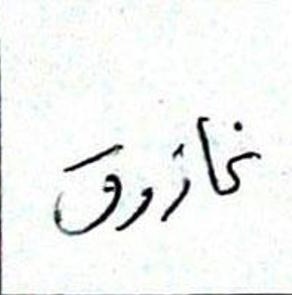 خازوق